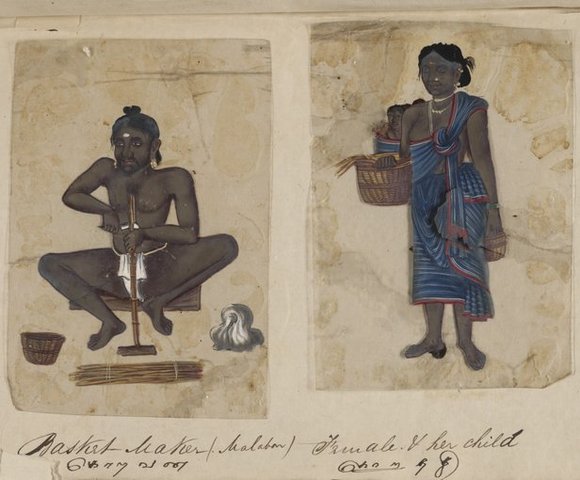 Basket Maker (Malabar) Female & her child
கொறவன